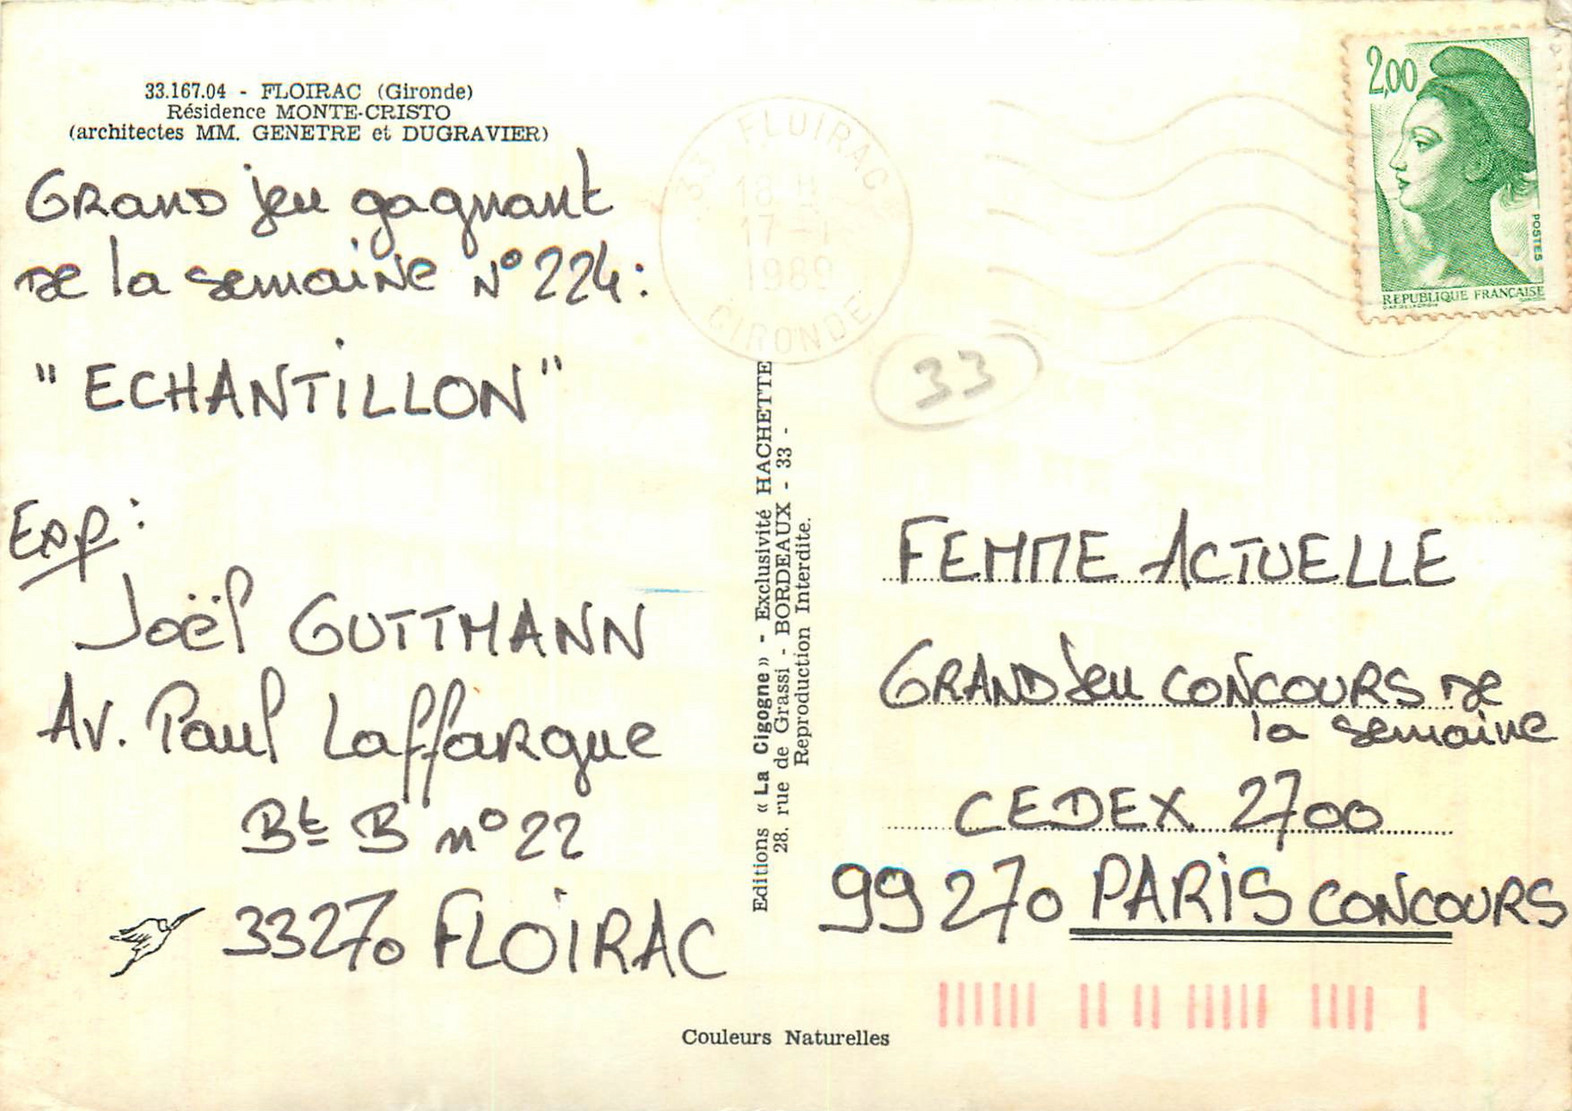 33.167.04 - FLOIRAC (Gironde)
Résidence MONTE-CRISTO
(architectes MM. GENETRE et DUGRAVIER)
GRAND jeu gagnant
DE la semaine N° 224 :
" ECHANTILLON "
Exp :
Joël GUTTMANN
Av. Paul Laffargue
Bt B n° 22
33270 FLOIRAC
Editions « La Cigogne » - Exclusivité HACHETTE
28. rue de Grassi - BORDEAUX - 33 -
Reproduction Interdite.
Couleurs Naturelles
33 FLOIRAC
18 H
17 -1
1989
GIRONDE
2,00
POSTES
REPUBLIQUE FRANÇAISE
33
FEMME ACTUELLE
GRAND jeu CONCOURS DE
la semaine
CEDEX 2700
99270 PARIS CONCOURS